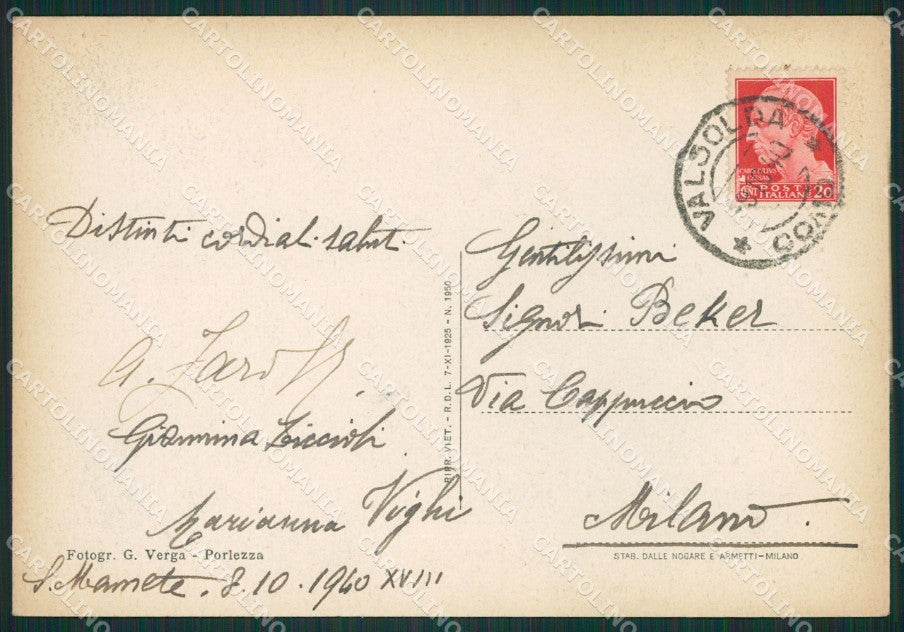 VALSOLDA
COMO
POSTE
ITALIANE
20
Distinti cordial. salut.
G. Zarolli
Giannina Ziccioli
Marianna Vighi
Fotogr. G. Verga - Porlezza
S. Mamete. 8.10.1940 XVIII
RIPR. VIET. - R.D.L. 7-XI-1925 - N. 1950
Gentilissimi
Signori Beker
Via Cappuccio
Milano.
STAB. DALLE NOGARE E ARMETTI - MILANO
CARTOLINOMANIA